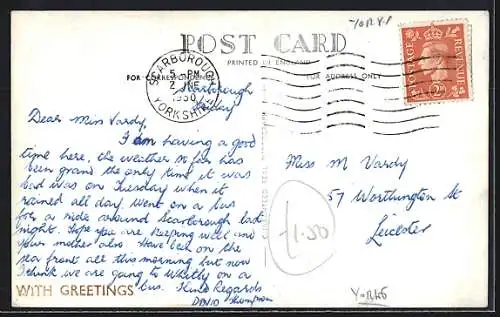 YORKS
POST CARD
PRINTED IN ENGLAND
FOR CORRESPONDENCE
FOR ADDRESS ONLY
SCARBOROUGH
5 - PM
2 JNE
1950
YORKSHIRE
POSTAGE REVENUE
2D
Scarborough
Friday
Dear Miss Vardy,
I am having a good
time here, the weather so far has
been grand the only time it was
bad was on Tuesday when it
rained all day. Went on a bus
for a ride around Scarborough last
night. Hope you are keeping well and
your mother also. Have been on the
sea front all this morning but now
I think we are going to Whitby on a
bus. Kind Regards
David Thompson
WITH GREETINGS
Miss M Vardy
57 Worthington St
Leicester
-1.50
YORKS